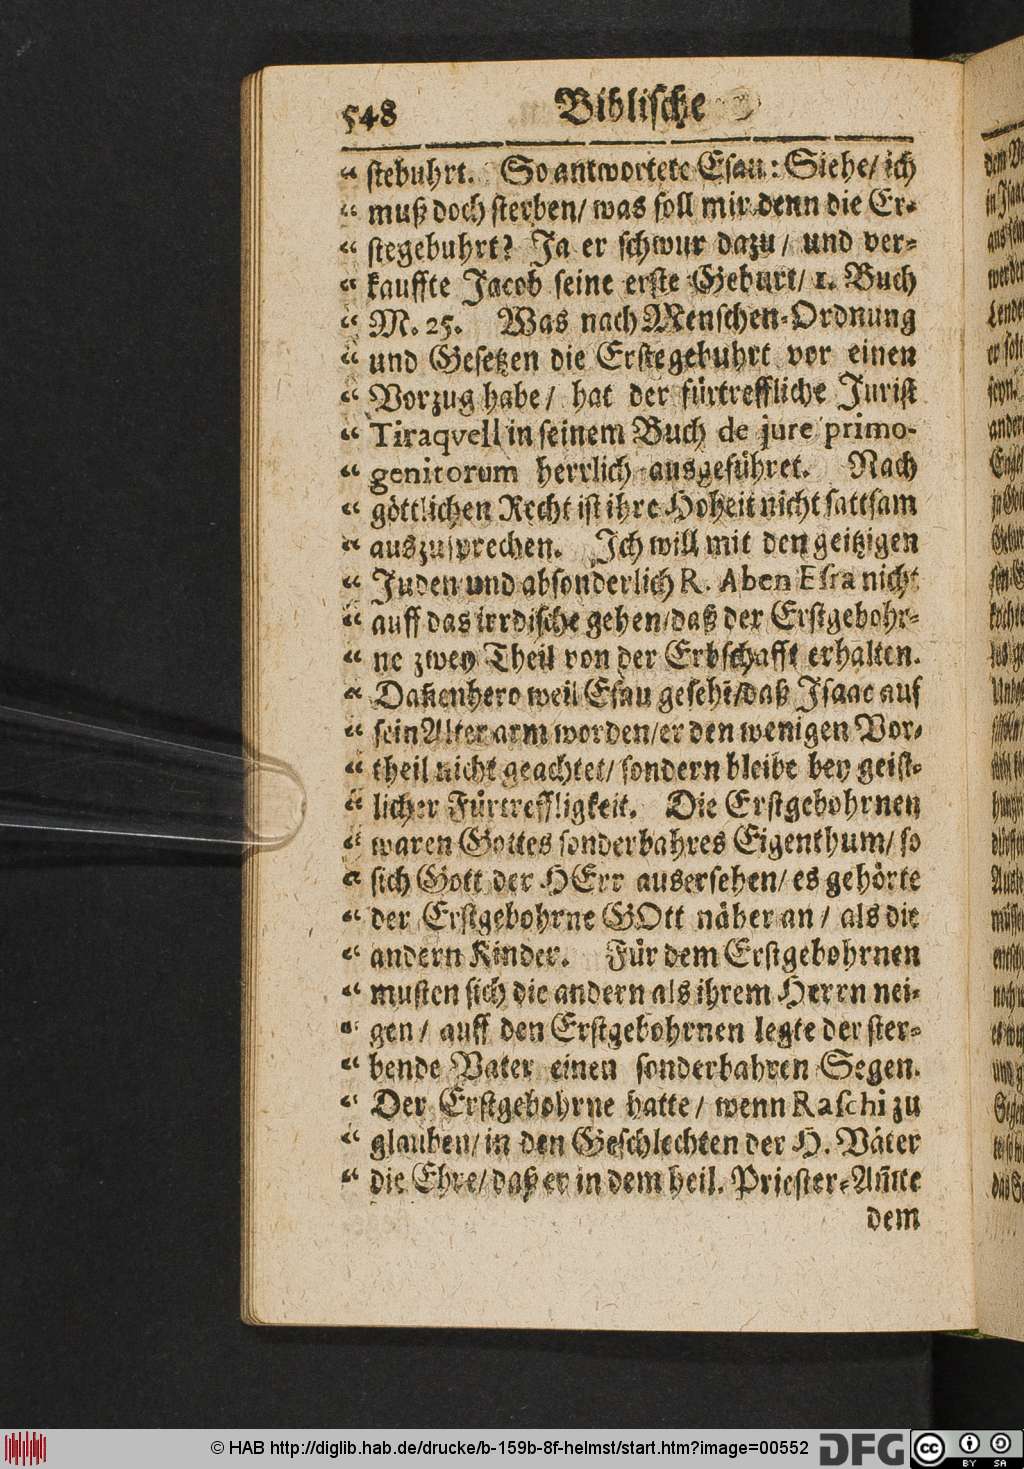 548 Biblische
“ stebuhrt. So antwortete Esau: Siehe/ ich
“ muß doch sterben/ was soll mir denn die Er-
“ stegebuhrt? Ja er schwur dazu/ und ver-
“ kauffte Jacob seine erste Geburt/ 1. Buch
“ M. 25. Was nach Menschen-Ordnung
“ und Gesetzen die Erstegebuhrt vor einen
“ Vorzug habe/ hat der fürtreffliche Jurist
“ Tiraqvell in seinem Buch de jure primo-
“ genitorum herrlich ausgeführet. Nach
“ göttlichen Recht ist ihre Hoheit nicht sattsam
“ auszusprechen. Ich will mit den geitzigen
“ Juden und absonderlich R. Aben Esra nicht
“ auff das irrdische gehen/ daß der Erstgebohr-
“ ne zwey Theil von der Erbschafft erhalten.
“ Dañenhero weil Esau gesehē/ daß Isaac auf
“ sein Alter arm worden/ er den wenigen Vor-
“ theil nicht geachtet/ sondern bleibe bey geist-
“ licher Fürtreffligkeit. Die Erstgebohrnen
“ waren Gottes sonderbahres Eigenthum/ so
“ sich Gott der HErr ausersehen/ es gehörte
“ der Erstgebohrne GOtt näher an/ als die
“ andern Kinder. Für dem Erstgebohrnen
“ musten sich die andern als ihrem Herrn nei-
“ gen/ auff den Erstgebohrnen legte der ster-
“ bende Vater einen sonderbahren Segen.
“ Der Erstgebohrne hatte/ wenn Raschi zu
“ glauben/ in den Geschlechten der H. Väter
“ die Ehre/ daß er in dem heil. Priester-Am̃te
dem
© HAB http://diglib.hab.de/drucke/b-159b-8f-helmst/start.htm?image=00552 DFG cc BY SA